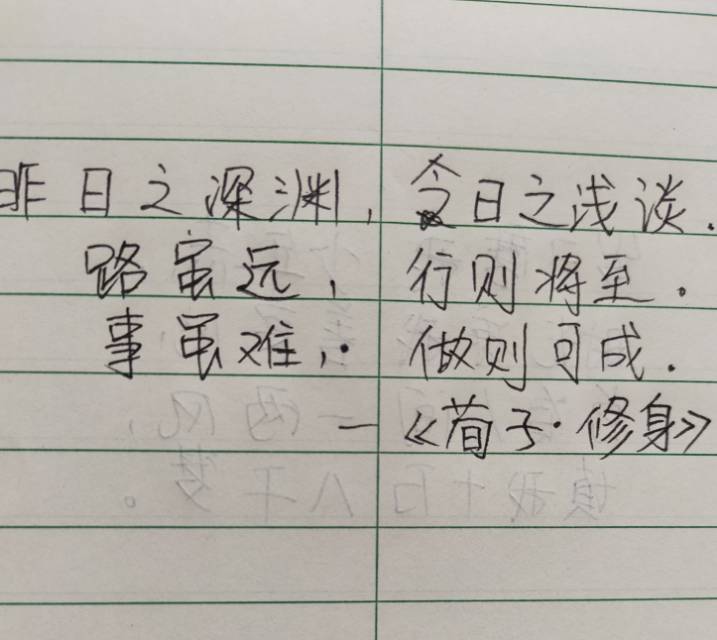 昨日之深渊,今日之浅谈.
路虽远,行则将至.
事虽难,·做则可成.
—《荀子·修身》